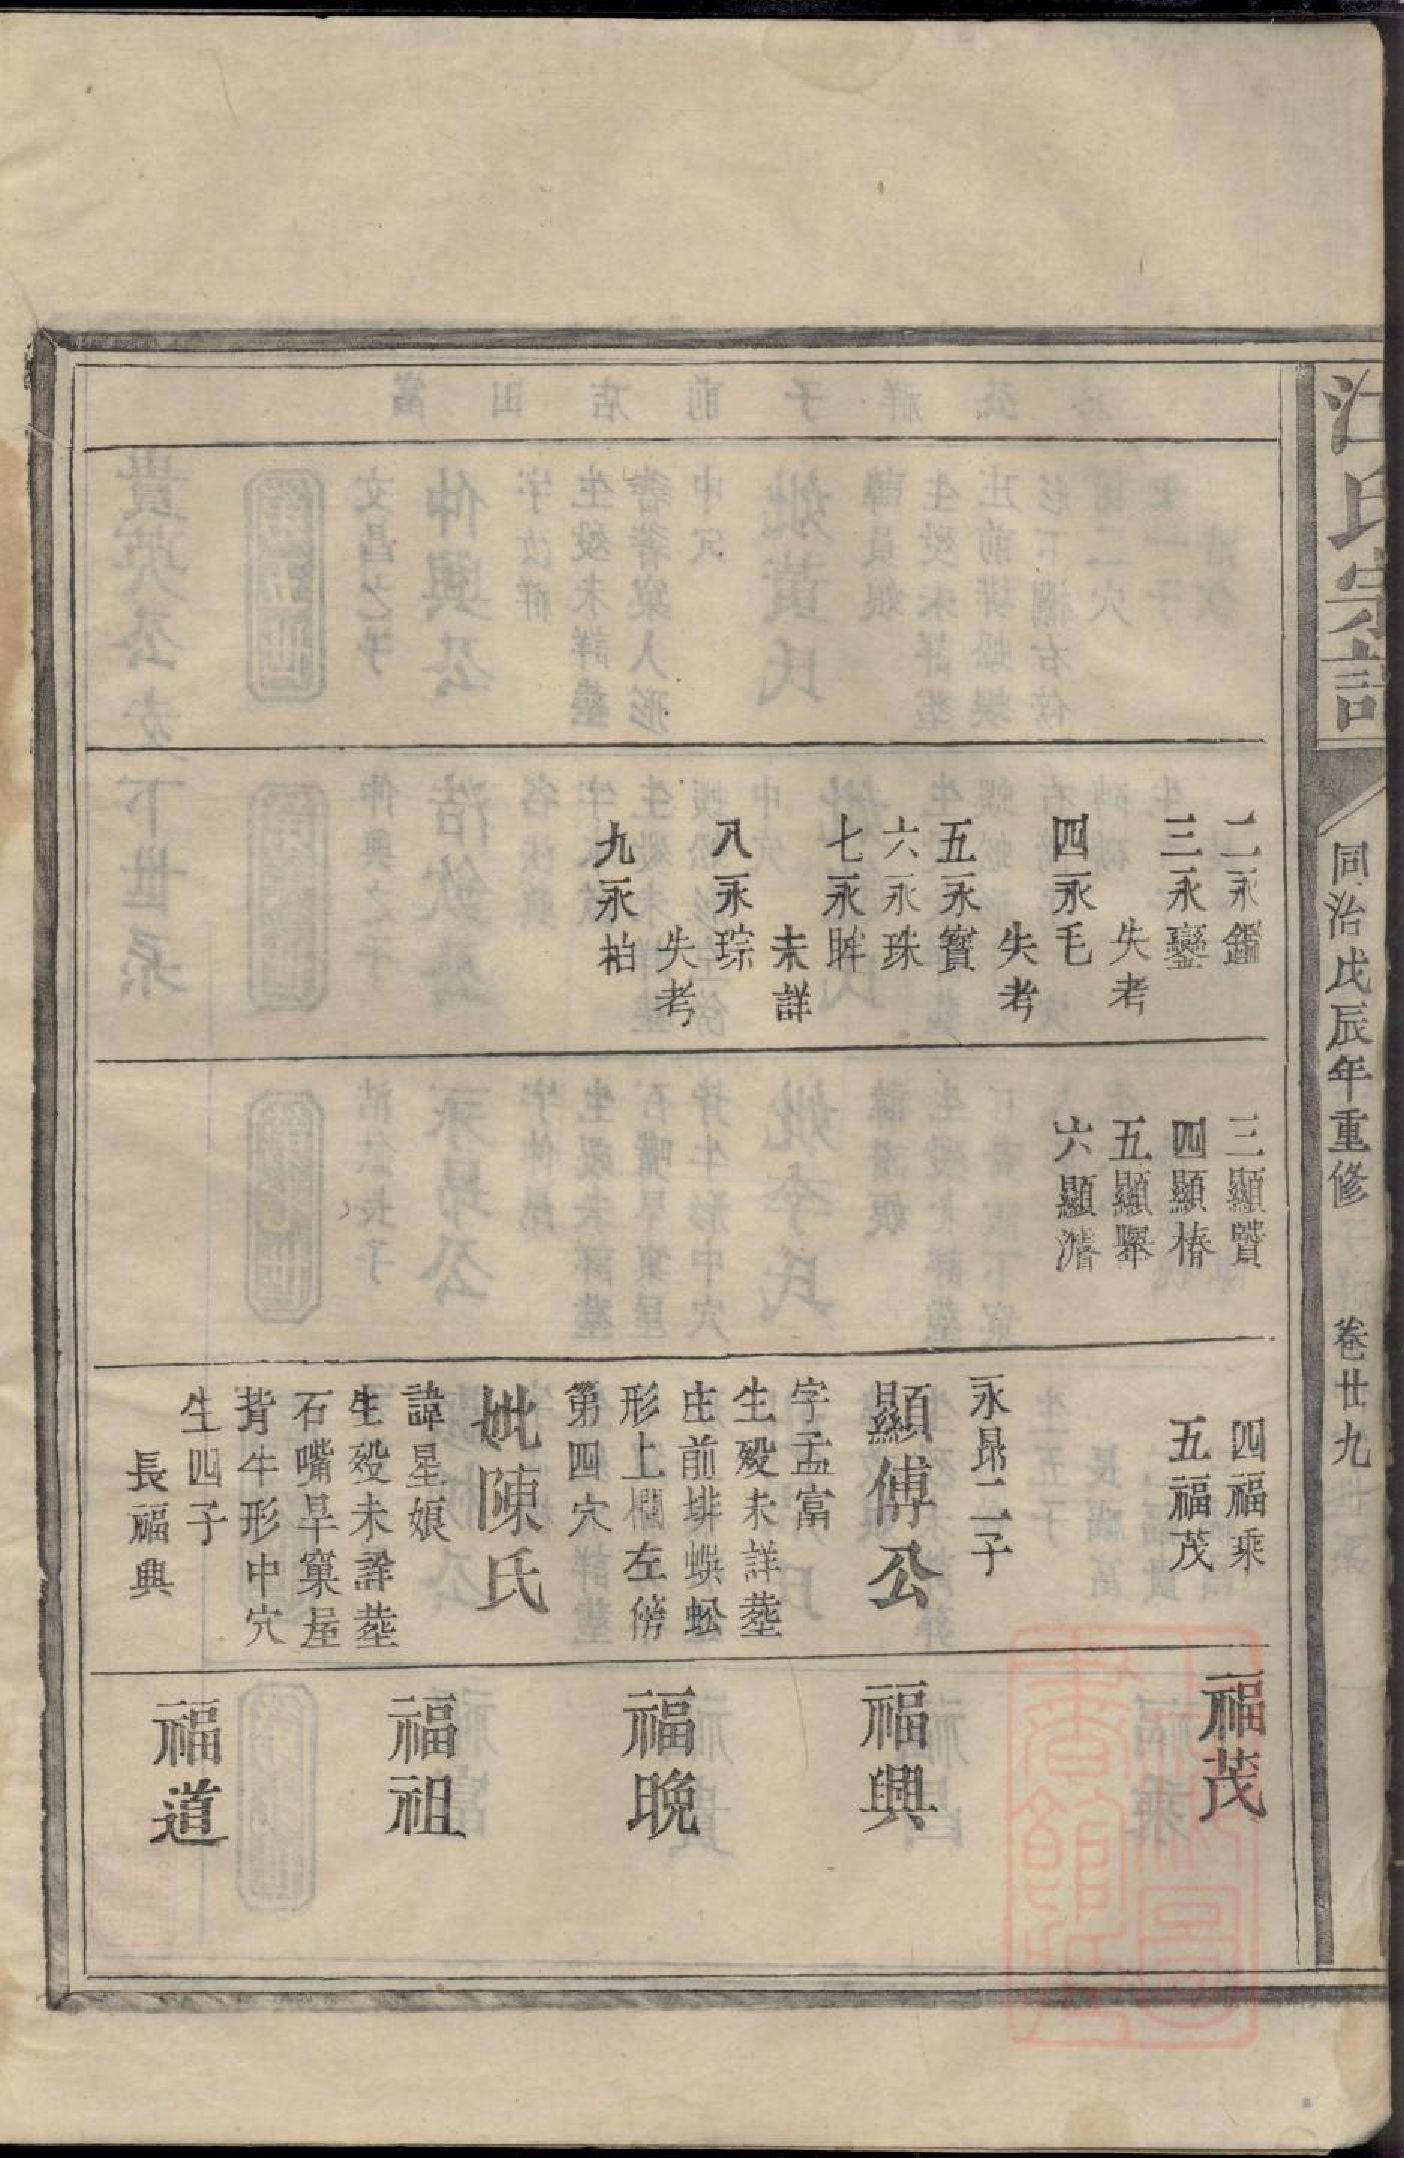 江氏宗譜
同治戊辰年重修
卷廿九
二永鑑
三永鑾
失考
四永毛
失考
五永寶
六永珠
七永眸
未詳
八永琮
失考
九永柏
三顯贊
四顯椿
五顯舉
六顯濬
四福乘
五福茂
永昴二子
顯傅公
字孟富
生殁未詳塟
庄前垪蜈蚣
形上欄左傍
第四穴
妣陳氏
諱星娘
生殁未詳塟
石嘴旱窠屋
背牛形中穴
生四子
長福興
福茂
福興
福晩
福祖
福道